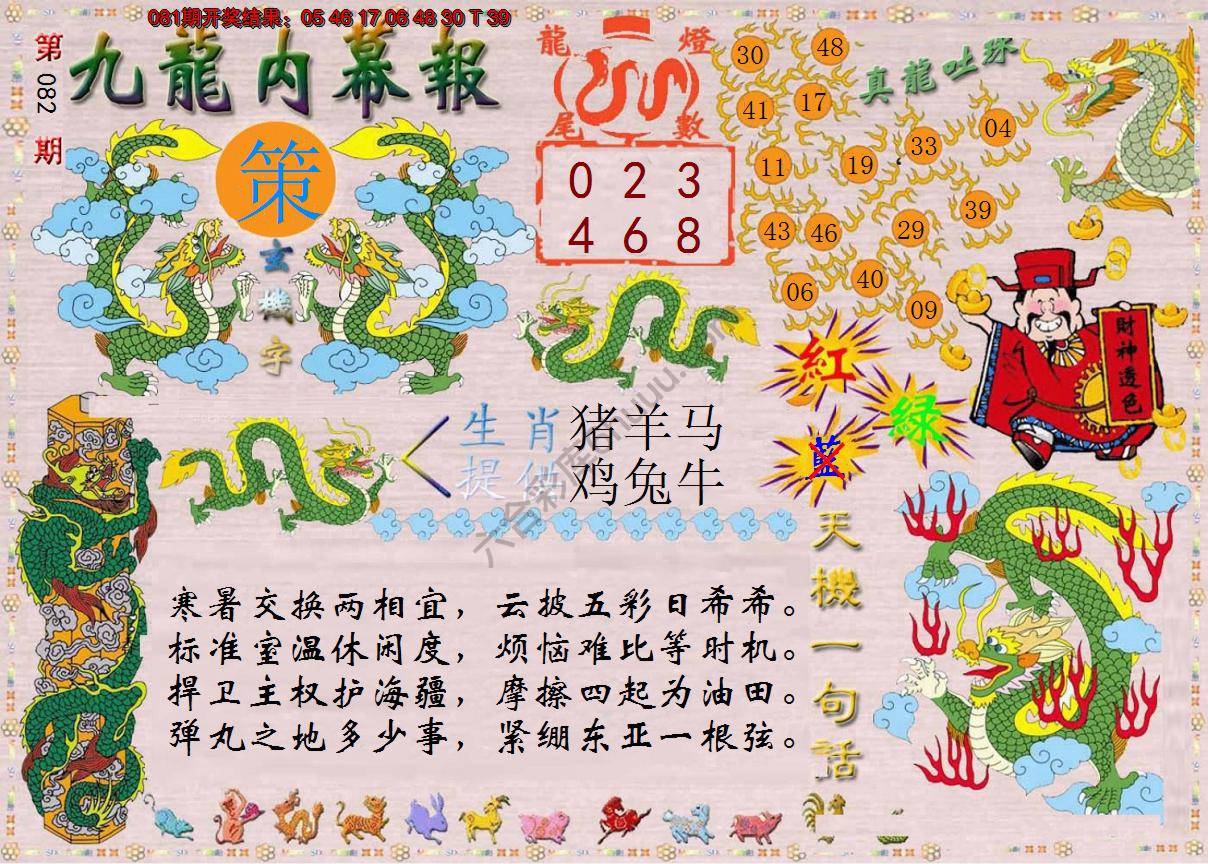 081期开奖结果：05 46 17 06 48 30 T 39
第082期
九龍内幕報
策
玄機字
龍燈
尾數
0 2 3
4 6 8
真龍吐珠
30 48
41 17
11 19 33 04
43 46 29 39
06 40 09
財神透色
紅
綠
藍
生肖 猪羊马
提供 鸡兔牛
天機一句話
寒暑交换两相宜，云披五彩日希希。
标准室温休闲度，烦恼难比等时机。
捍卫主权护海疆，摩擦四起为油田。
弹丸之地多少事，紧绷东亚一根弦。